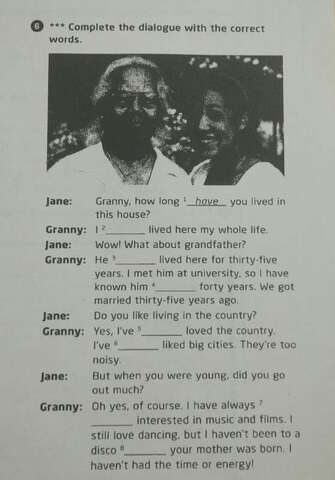 6 *** Complete the dialogue with the correct
words.
Jane: Granny, how long ¹ have you lived in
this house?
Granny: I ²_______ lived here my whole life.
Jane: Wow! What about grandfather?
Granny: He ³_______ lived here for thirty-five
years. I met him at university, so I have
known him ⁴_______ forty years. We got
married thirty-five years ago.
Jane: Do you like living in the country?
Granny: Yes, I've ⁵_______ loved the country.
I've ⁶_______ liked big cities. They're too
noisy.
Jane: But when you were young, did you go
out much?
Granny: Oh yes, of course. I have always ⁷
_______ interested in music and films. I
still love dancing, but I haven't been to a
disco ⁸_______ your mother was born. I
haven't had the time or energy!